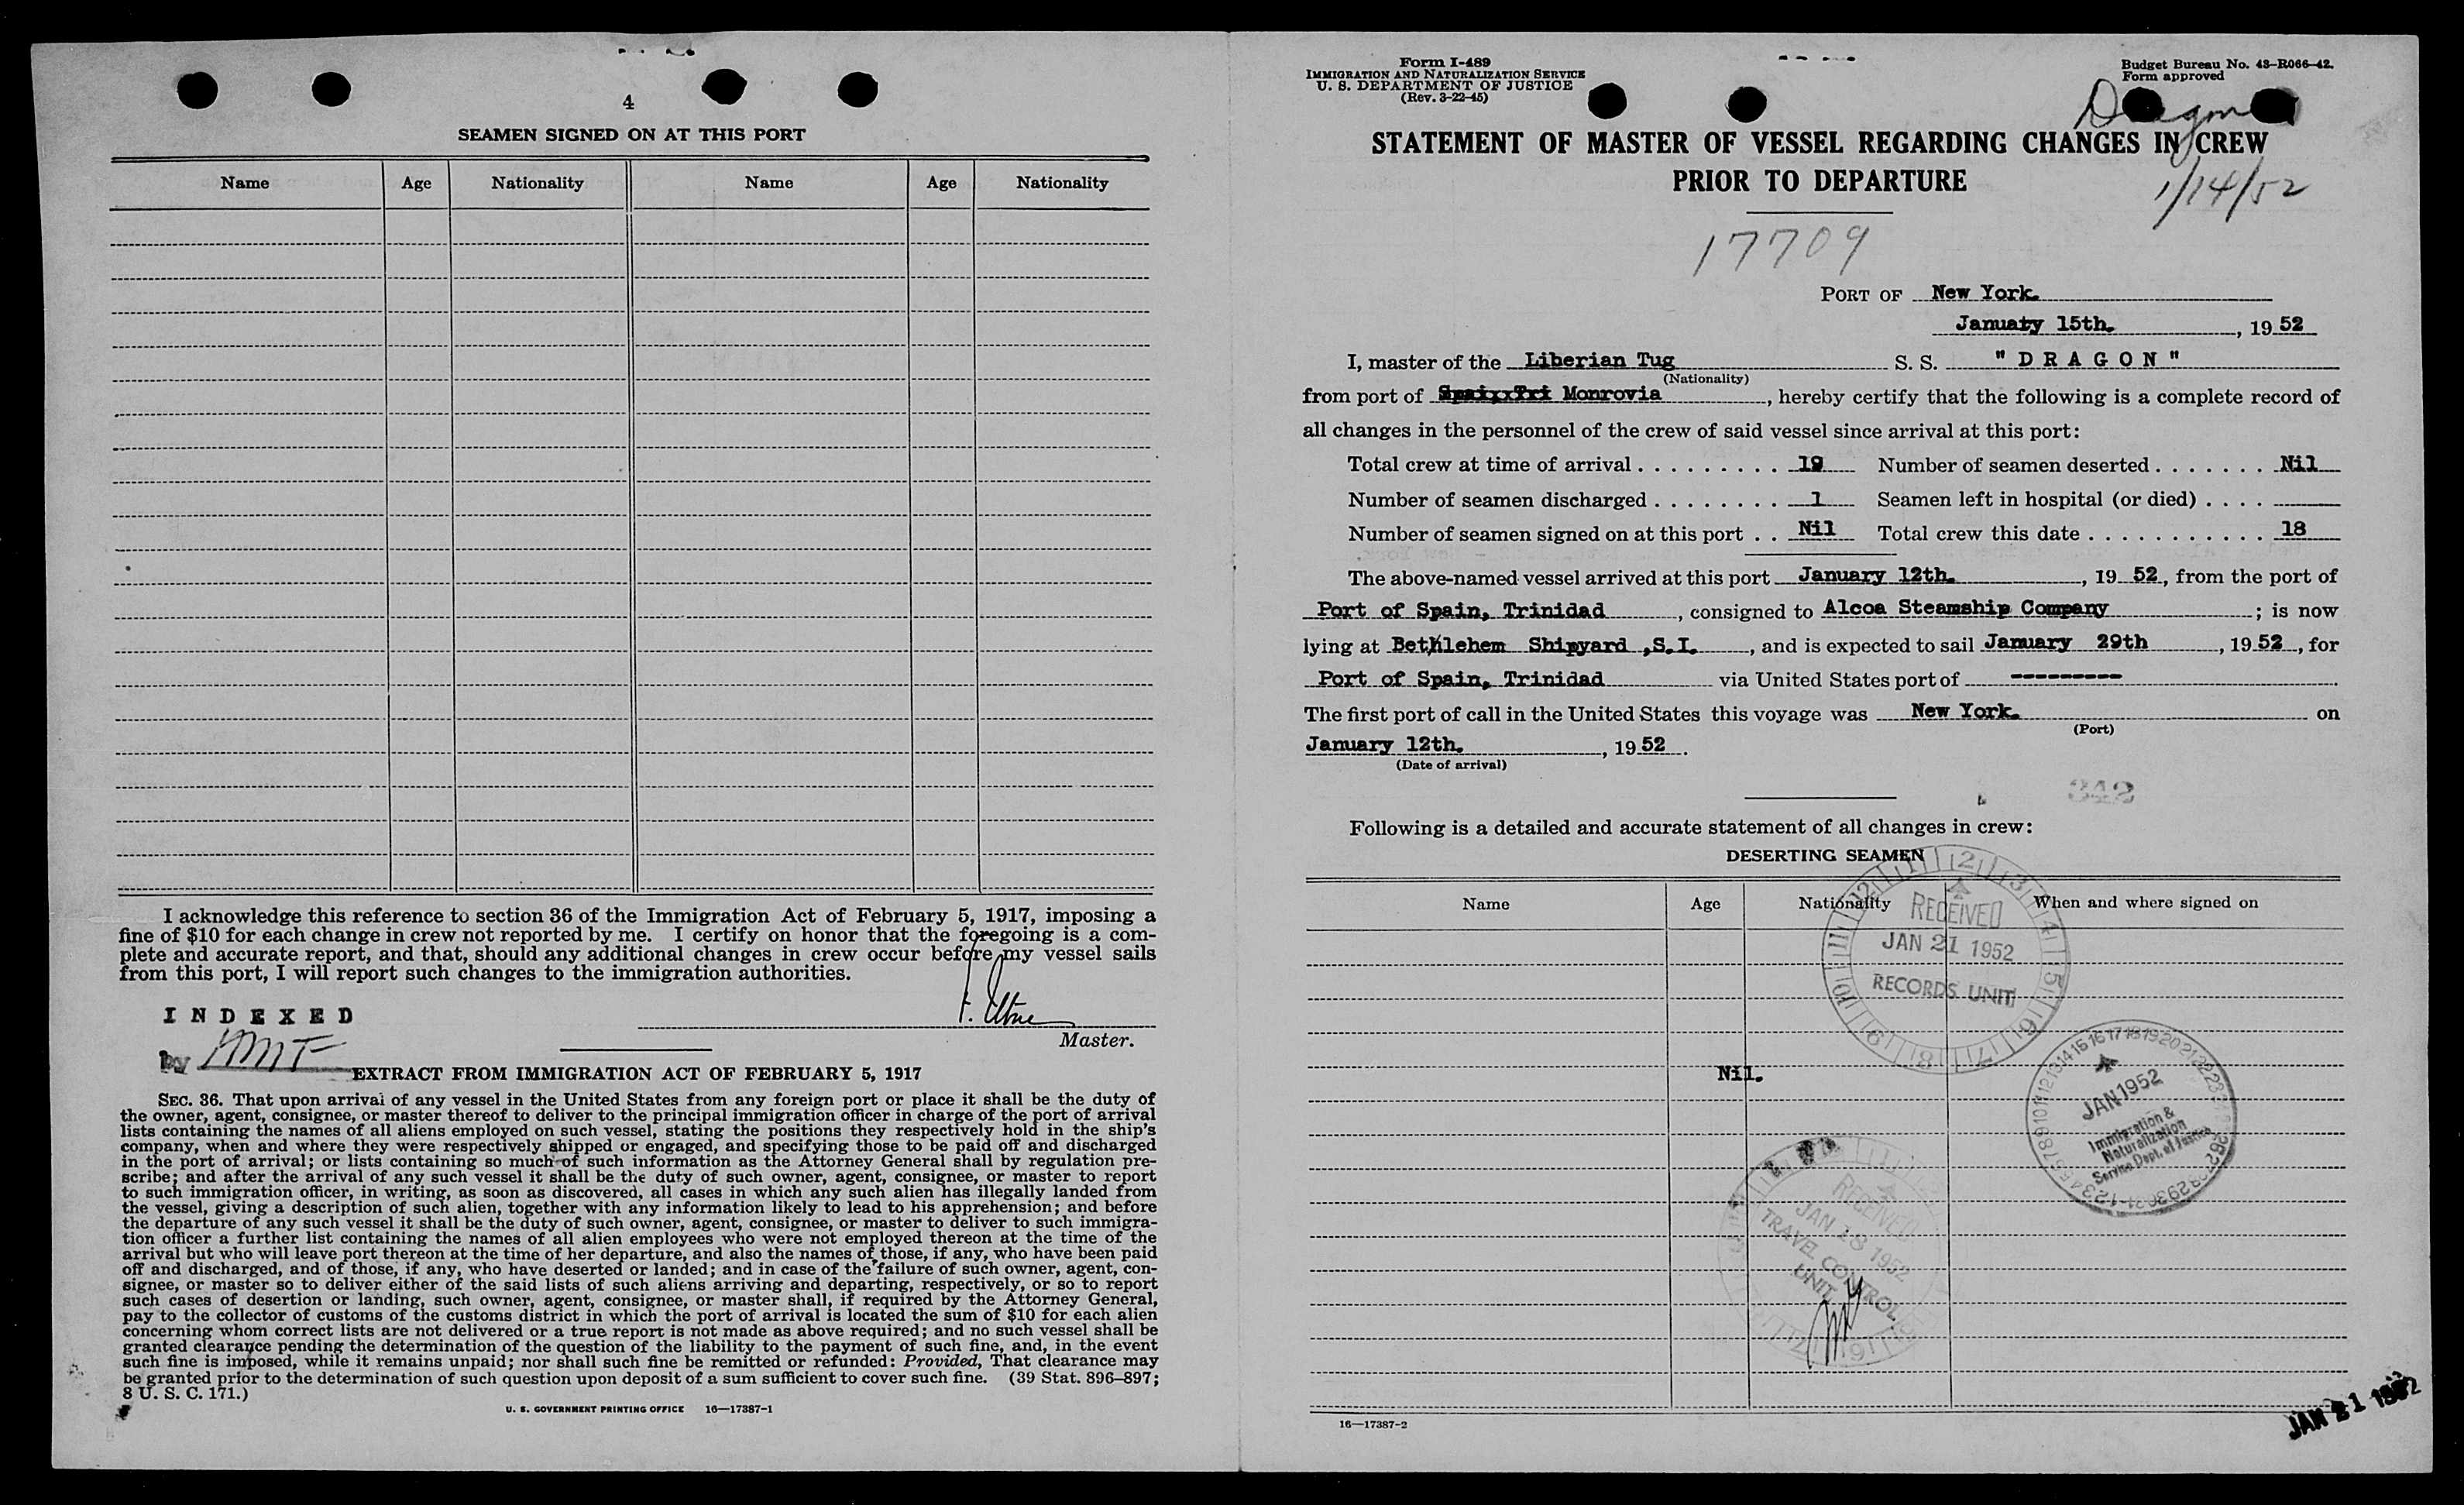 4
SEAMEN SIGNED ON AT THIS PORT
Name Age Nationality Name Age Nationality
I acknowledge this reference to section 36 of the Immigration Act of February 5, 1917, imposing a
fine of $10 for each change in crew not reported by me. I certify on honor that the foregoing is a com-
plete and accurate report, and that, should any additional changes in crew occur before my vessel sails
from this port, I will report such changes to the immigration authorities.
INDEXED
Master.
by
EXTRACT FROM IMMIGRATION ACT OF FEBRUARY 5, 1917
SEC. 36. That upon arrival of any vessel in the United States from any foreign port or place it shall be the duty of
the owner, agent, consignee, or master thereof to deliver to the principal immigration officer in charge of the port of arrival
lists containing the names of all aliens employed on such vessel, stating the positions they respectively hold in the ship's
company, when and where they were respectively shipped or engaged, and specifying those to be paid off and discharged
in the port of arrival; or lists containing so much of such information as the Attorney General shall by regulation pre-
scribe; and after the arrival of any such vessel it shall be the duty of such owner, agent, consignee, or master to report
to such immigration officer, in writing, as soon as discovered, all cases in which any such alien has illegally landed from
the vessel, giving a description of such alien, together with any information likely to lead to his apprehension; and before
the departure of any such vessel it shall be the duty of such owner, agent, consignee, or master to deliver to such immigra-
tion officer a further list containing the names of all alien employees who were not employed thereon at the time of the
arrival but who will leave port thereon at the time of her departure, and also the names of those, if any, who have been paid
off and discharged, and of those, if any, who have deserted or landed; and in case of the failure of such owner, agent, con-
signee, or master so to deliver either of the said lists of such aliens arriving and departing, respectively, or so to report
such cases of desertion or landing, such owner, agent, consignee, or master shall, if required by the Attorney General,
pay to the collector of customs of the customs district in which the port of arrival is located the sum of $10 for each alien
concerning whom correct lists are not delivered or a true report is not made as above required; and no such vessel shall be
granted clearance pending the determination of the question of the liability to the payment of such fine, and, in the event
such fine is imposed, while it remains unpaid; nor shall such fine be remitted or refunded: Provided, That clearance may
be granted prior to the determination of such question upon deposit of a sum sufficient to cover such fine. (39 Stat. 896–897;
8 U. S. C. 171.)
U. S. GOVERNMENT PRINTING OFFICE 16—17387-1
Form I-489
IMMIGRATION AND NATURALIZATION SERVICE
U. S. DEPARTMENT OF JUSTICE
(Rev. 3-22-45)
Budget Bureau No. 43-R066-42.
Form approved
STATEMENT OF MASTER OF VESSEL REGARDING CHANGES IN CREW
PRIOR TO DEPARTURE
1/14/52
17709
PORT OF New York.
January 15th. , 19 52
I, master of the Liberian Tug S. S. "DRAGON"
(Nationality)
from port of Monrovia , hereby certify that the following is a complete record of
all changes in the personnel of the crew of said vessel since arrival at this port:
Total crew at time of arrival . . . . . . . . . . 19 Number of seamen deserted . . . . . . . Nil
Number of seamen discharged . . . . . . . . . 1 Seamen left in hospital (or died) . . . .
Number of seamen signed on at this port . . Nil Total crew this date . . . . . . . . . . . . 18
The above-named vessel arrived at this port January 12th. , 19 52, from the port of
Port of Spain, Trinidad , consigned to Alcoa Steamship Company ; is now
lying at Bethlehem Shipyard ,S.I. , and is expected to sail January 29th , 19 52 , for
Port of Spain, Trinidad via United States port of ---------
The first port of call in the United States this voyage was New York. on
(Port)
January 12th. , 19 52 .
(Date of arrival)
342
Following is a detailed and accurate statement of all changes in crew:
DESERTING SEAMEN
Name Age Nationality When and where signed on
RECEIVED
JAN 21 1952
RECORDS UNIT
Nil.
JAN 1952
Immigration &
Naturalization
Service Dept. of Justice
RECEIVED
JAN 18 1952
TRAVEL CONTROL
UNIT
16—17387-2
JAN 21 1952